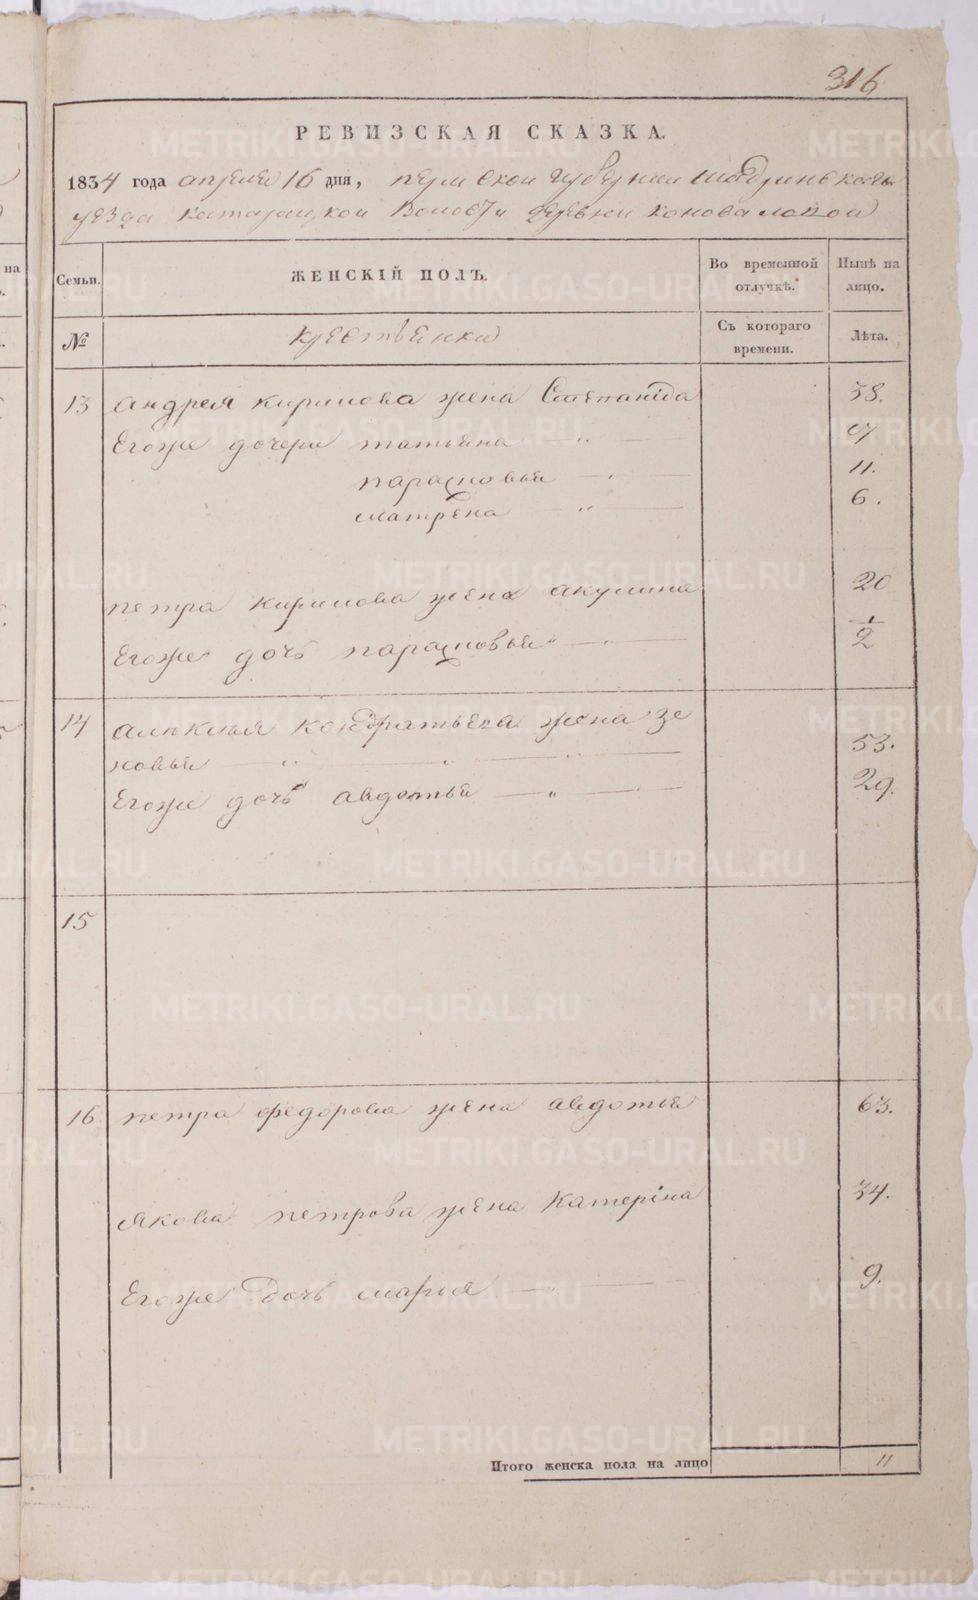 316
РЕВИЗСКАЯ СКАЗКА.
1834 года апреля 16 дня, пермской губернии шадринскаго
уезда катарацкой волости деревни коноваловой
Семьи. ЖЕНСКІЙ ПОЛЪ. Во временной отлучкѣ. Нынѣ на лицо.
№ крестьянки Съ котораго времени. Лѣта.
13 андрея кирилова жена Степанida 38.
Егоже дочери татьяна 17
парасковья 11.
матрена 6.
петра кирилова жена акулина 20
Егоже дочь парасковья 1/2
14 алексея кондратьева жена зе
новья 53.
Егоже дочь авдотья 29.
15
16 петра федорова жена авдотья 63.
якова петрова жена катерiна 34.
Егоже дочь марья 9.
Итого женска пола на лицо 11
METRIKI.GASO-URAL.RU